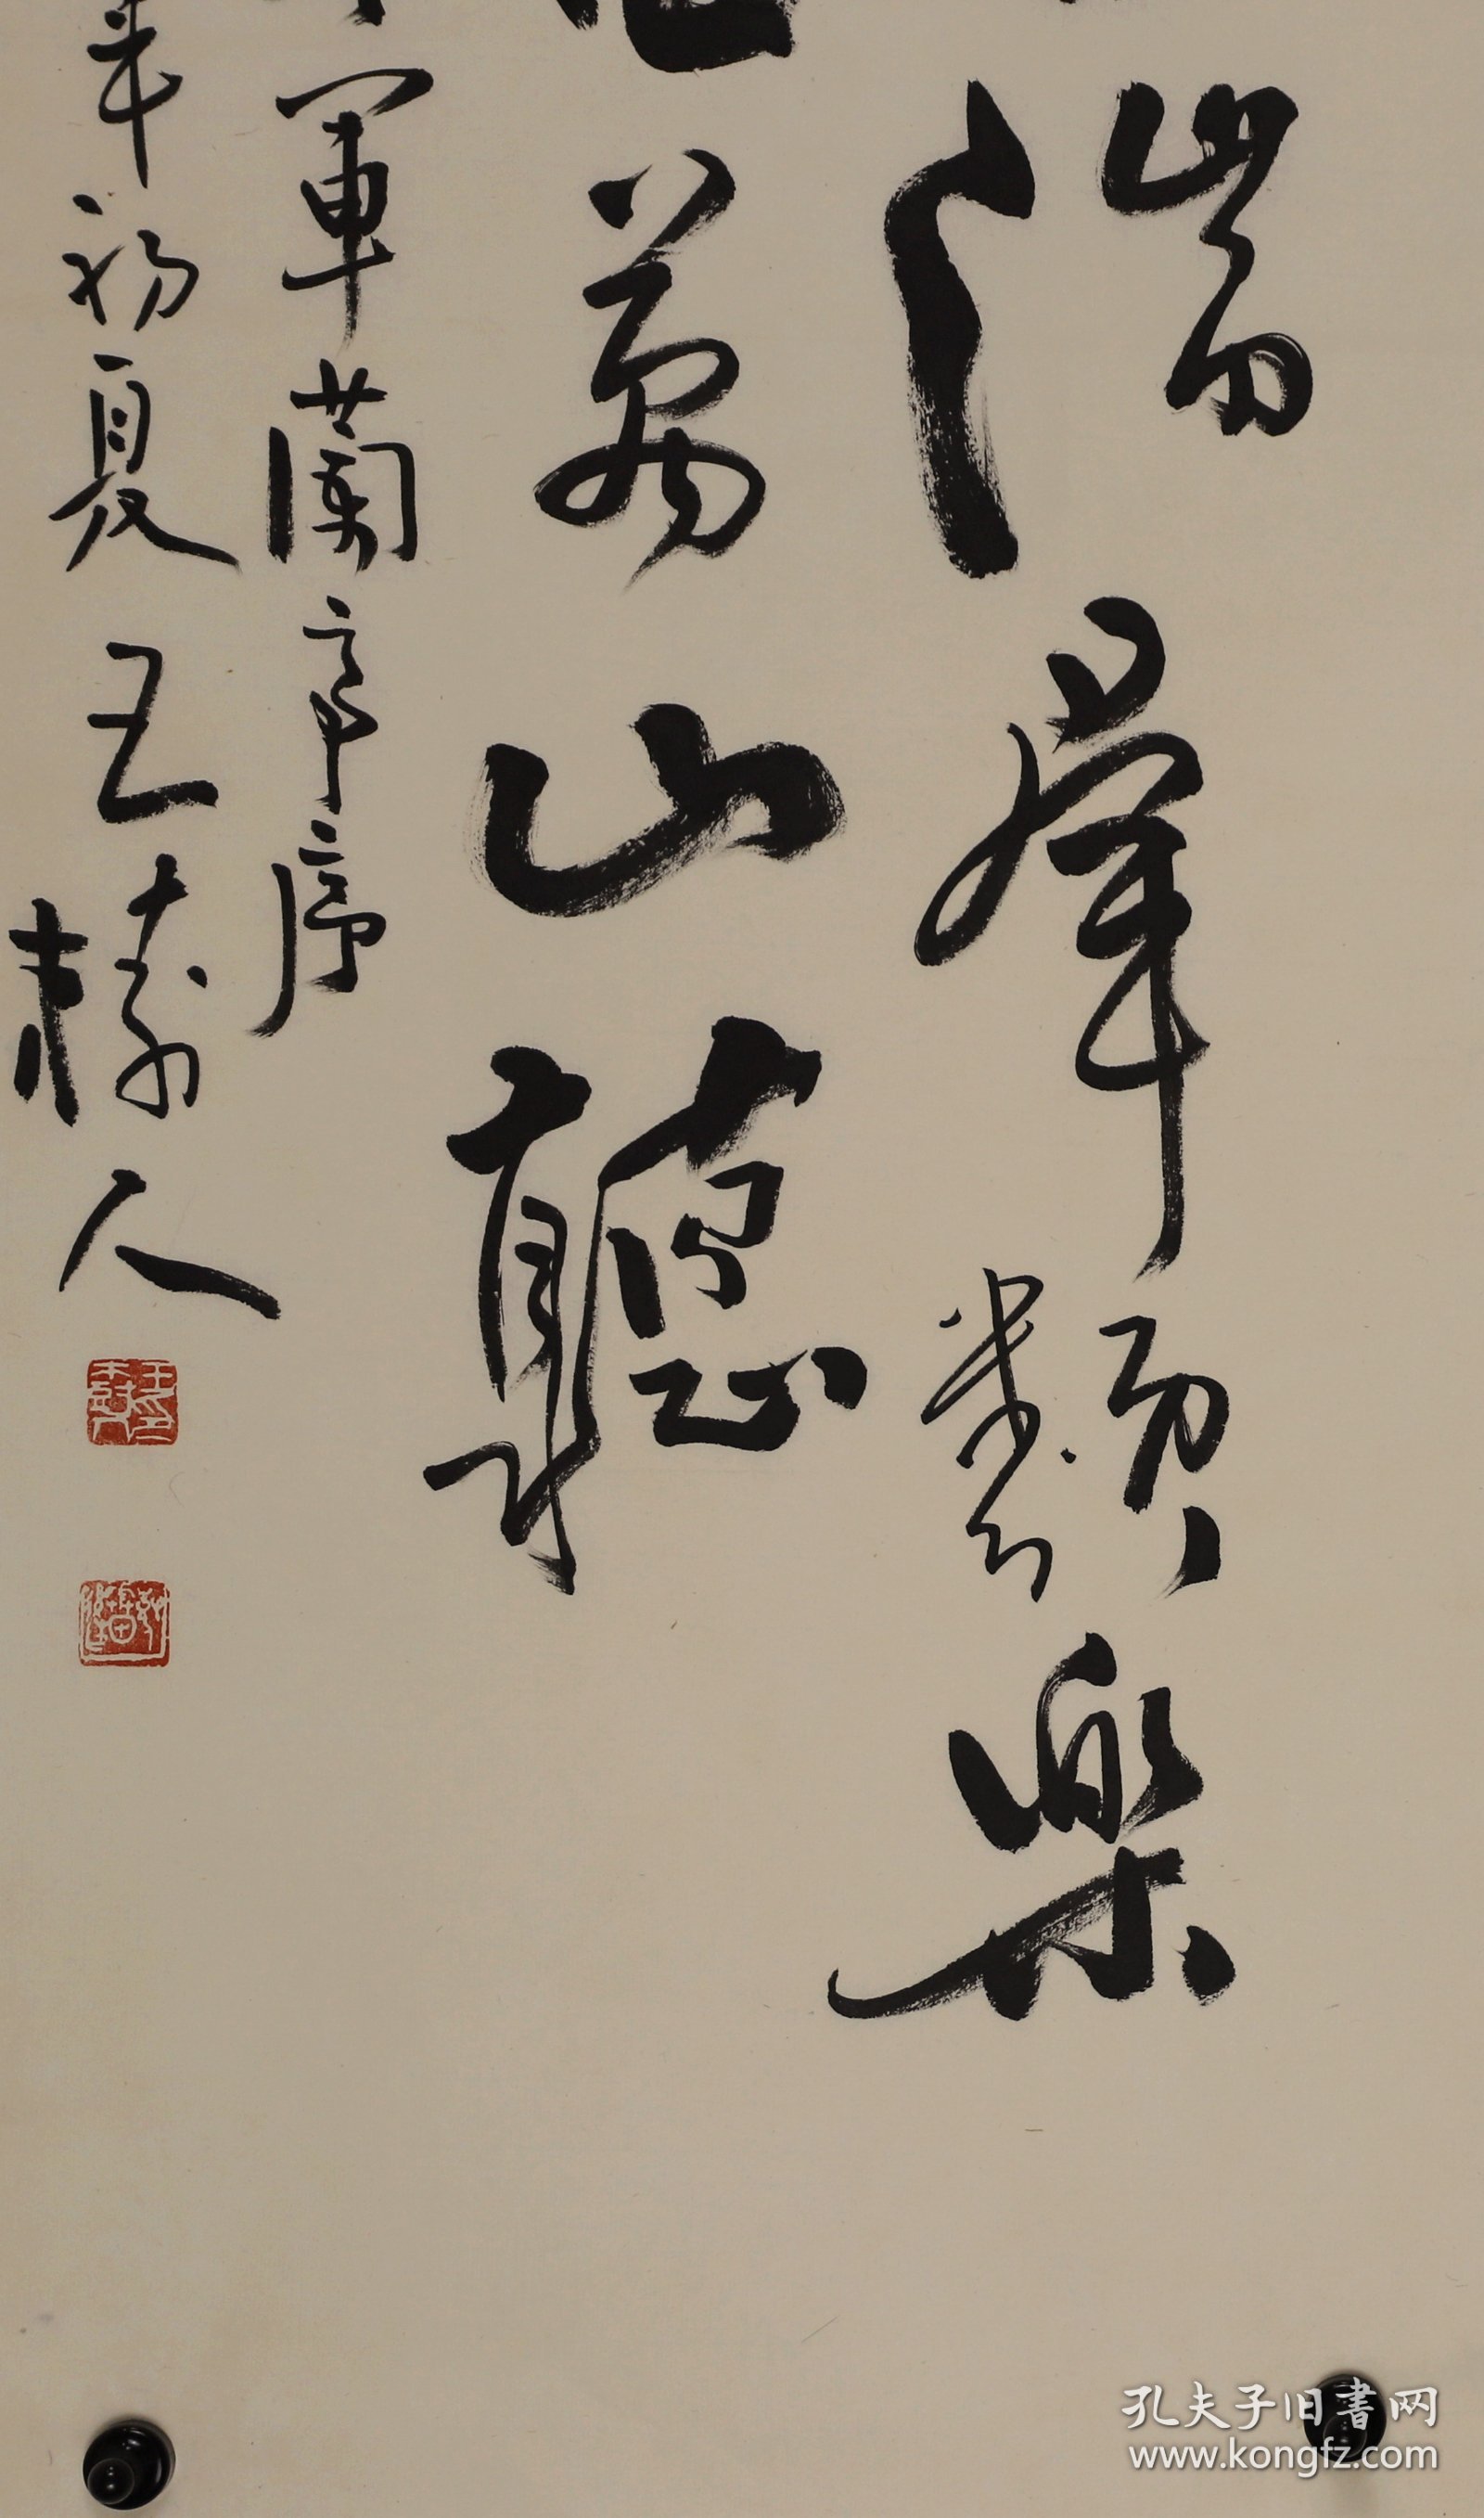 偕群類樂
萬山聽
軍蘭亭序
年初夏王樹人
孔夫子旧書网
www.kongfz.com